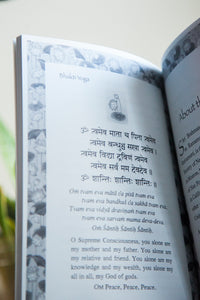 Bhakti Yoga
ॐ त्वमेव माता च पिता त्वमेव
त्वमेव बन्धुश्च सखा त्वमेव
त्वमेव विद्या द्रविणं त्वमेव
त्वमेव सर्वं मम देवदेव ॥
ॐ शान्तिः शान्तिः शान्तिः ॥
Om tvam eva mātā ca pitā tvam eva
tvam eva bandhuś ca sakhā tvam eva
tvam eva vidyā draviṇam tvam eva
tvam eva sarvam mama deva-deva.
OM Śāntiḥ Śāntiḥ Śāntiḥ.
O Supreme Consciousness, you alone are
my mother and my father. You alone are
my relative and friend. You alone are my
knowledge and my wealth, you alone are
all in all, my God of gods.
OM Peace, Peace, Peace.
About th